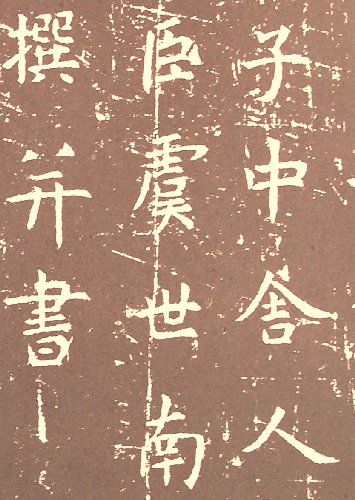 子中舎人
臣虞世南
撰并書